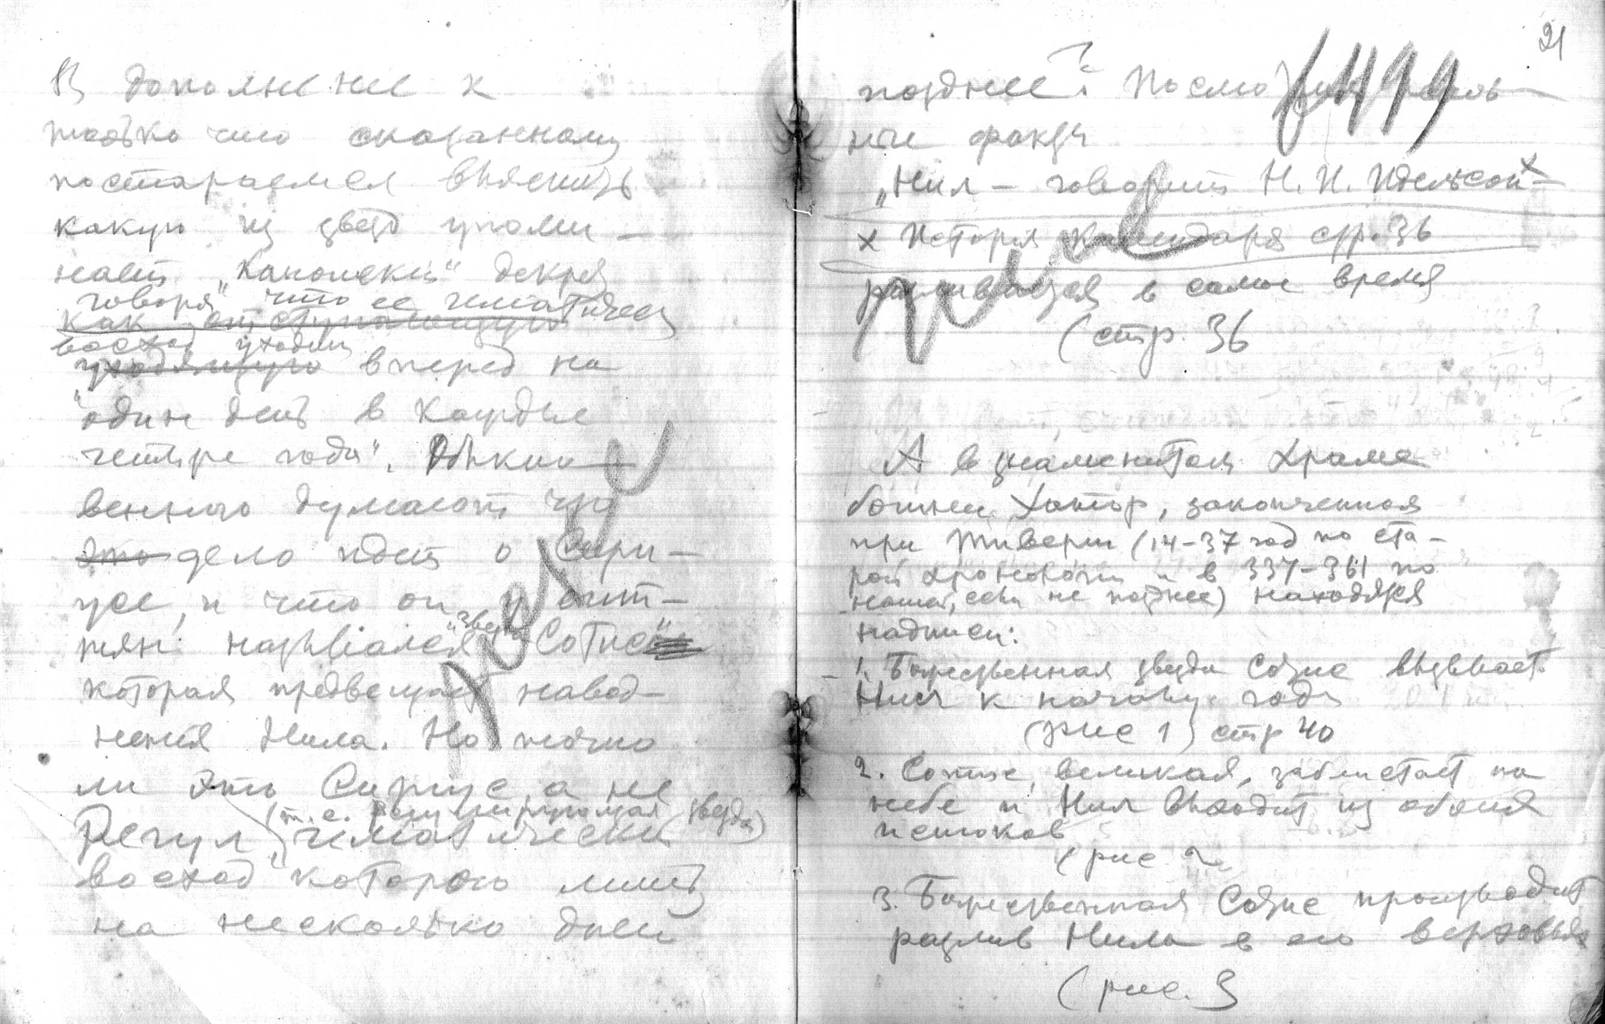 В дополнение к
только что сказанному
постараемся выяснить
какую из звезд упоми-
нает „Канопский“ декрет
говоря что ее гелиатичес
как отступающую
восход уходит
уходящую вперед на
"один день в каждые
четыре года". Обыкно-
венного думают что
это дело идет о Сири-
усе, и что он у египт-
тян назывался "звезда Сотис"
которая предвещает навод-
нения Нила. Но точно
ли это Сириус а не
(т.е. регулирующая звезда)
Регул, гелиатически
восход которого лишь
на несколько дней
21
позднее? Посмотрим
ные факты
f 499
„Нил – говорит Н. И. Идельсон x –
x История календаря стр. 36
разливается в самое время
(стр. 36
А в знаменитом храме
богини Хатор, законченная
при Тиверии (14-37 год по ста-
рой хронологии и в 337-361 по
нашей, если не позднее) находятся
надписи:
1. Божественная звезда Сотис вызывает
Нил к началу года
(рис 1) стр 40
2. Сотис великая, заблистает на
небе и Нил выходит из обоих
истоков
(рис 2
3. Божественная Сотис производит
разлив Нила в его верховьях
(рис. 3